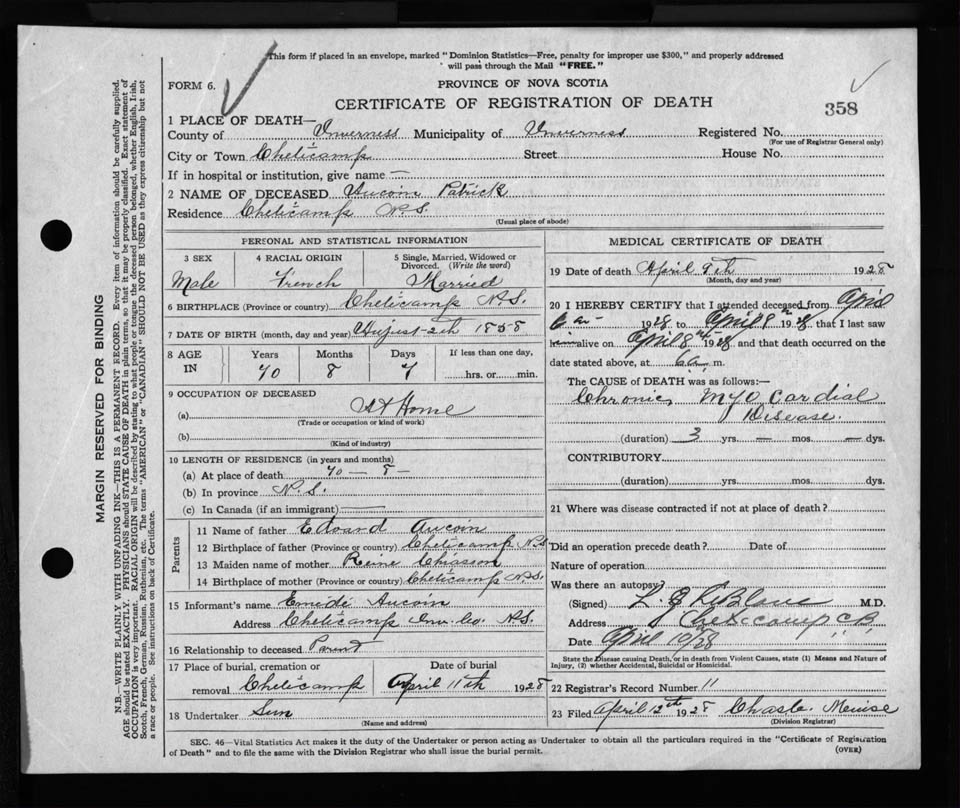 This form if placed in an envelope, marked "Dominion Statistics—Free, penalty for improper use $300," and properly addressed
will pass through the Mail "FREE."
FORM 6.
PROVINCE OF NOVA SCOTIA
CERTIFICATE OF REGISTRATION OF DEATH
358
1 PLACE OF DEATH—
County of Inverness Municipality of Inverness Registered No.
(For use of Registrar General only)
City or Town Cheticamp Street House No.
If in hospital or institution, give name —
2 NAME OF DECEASED Aucoin Patrick
Residence Cheticamp N.S.
(Usual place of abode)
PERSONAL AND STATISTICAL INFORMATION
3 SEX Male
4 RACIAL ORIGIN French
5 Single, Married, Widowed or Divorced. (Write the word) Married
6 BIRTHPLACE (Province or country) Cheticamp N.S.
7 DATE OF BIRTH (month, day and year) August 2th 1858
8 AGE IN Years Months Days If less than one day,
70 8 7 hrs. or min.
9 OCCUPATION OF DECEASED
(a) At Home
(Trade or occupation or kind of work)
(b)
(Kind of industry)
10 LENGTH OF RESIDENCE (in years and months)
(a) At place of death 70 — 8 —
(b) In province N.S.
(c) In Canada (if an immigrant)
Parents
11 Name of father Edward Aucoin
12 Birthplace of father (Province or country) Cheticamp N.S
13 Maiden name of mother Reine Chiasson
14 Birthplace of mother (Province or country) Cheticamp N.S.
15 Informant's name Emidi Aucoin
Address Cheticamp Inv. Co. N.S.
16 Relationship to deceased Parent
17 Place of burial, cremation or Date of burial
removal Cheticamp April 11th 1928
18 Undertaker Sun
(Name and address)
MEDICAL CERTIFICATE OF DEATH
19 Date of death April 9th 1928
(Month, day and year)
20 I HEREBY CERTIFY that I attended deceased from April
1928 to April 8 1928, that I last saw
alive on April 8 1928 and that death occurred on the
date stated above, at 6 a. m.
The CAUSE OF DEATH was as follows:—
Chronic Myo Cardial
Disease.
(duration) 3 yrs. — mos. — dys.
CONTRIBUTORY
(duration) yrs. mos. dys.
21 Where was disease contracted if not at place of death?
Did an operation precede death? Date of
Nature of operation
Was there an autopsy?
(Signed) L. E. LeBlanc M.D.
Address Cheticamp C.B.
Date April 10/28
State the Disease causing Death, or in death from Violent Causes, state (1) Means and Nature of
Injury, (2) whether Accidental, Suicidal or Homicidal.
22 Registrar's Record Number 11
23 Filed April 12th 1928 Chasle. Meuise
(Division Registrar)
SEC. 46—Vital Statistics Act makes it the duty of the Undertaker or person acting as Undertaker to obtain all the particulars required in the "Certificate of Registration
of Death" and to file the same with the Division Registrar who shall issue the burial permit.
(OVER)
MARGIN RESERVED FOR BINDING
N.B.—WRITE PLAINLY WITH UNFADING INK—THIS IS A PERMANENT RECORD. Every item of information should be carefully supplied.
AGE should be stated EXACTLY. PHYSICIANS should STATE CAUSE OF DEATH in plain terms, so that it may be properly classified. Exact statement of
OCCUPATION is very important. RACIAL ORIGIN will be described by stating to what people or tongue the deceased person belonged, whether English, Irish,
Scotch, French, German, Russian, Ruthenian, etc. The terms "AMERICAN" or "CANADIAN" SHOULD NOT BE USED as they express citizenship but not
a race or people. See instructions on back of Certificate.